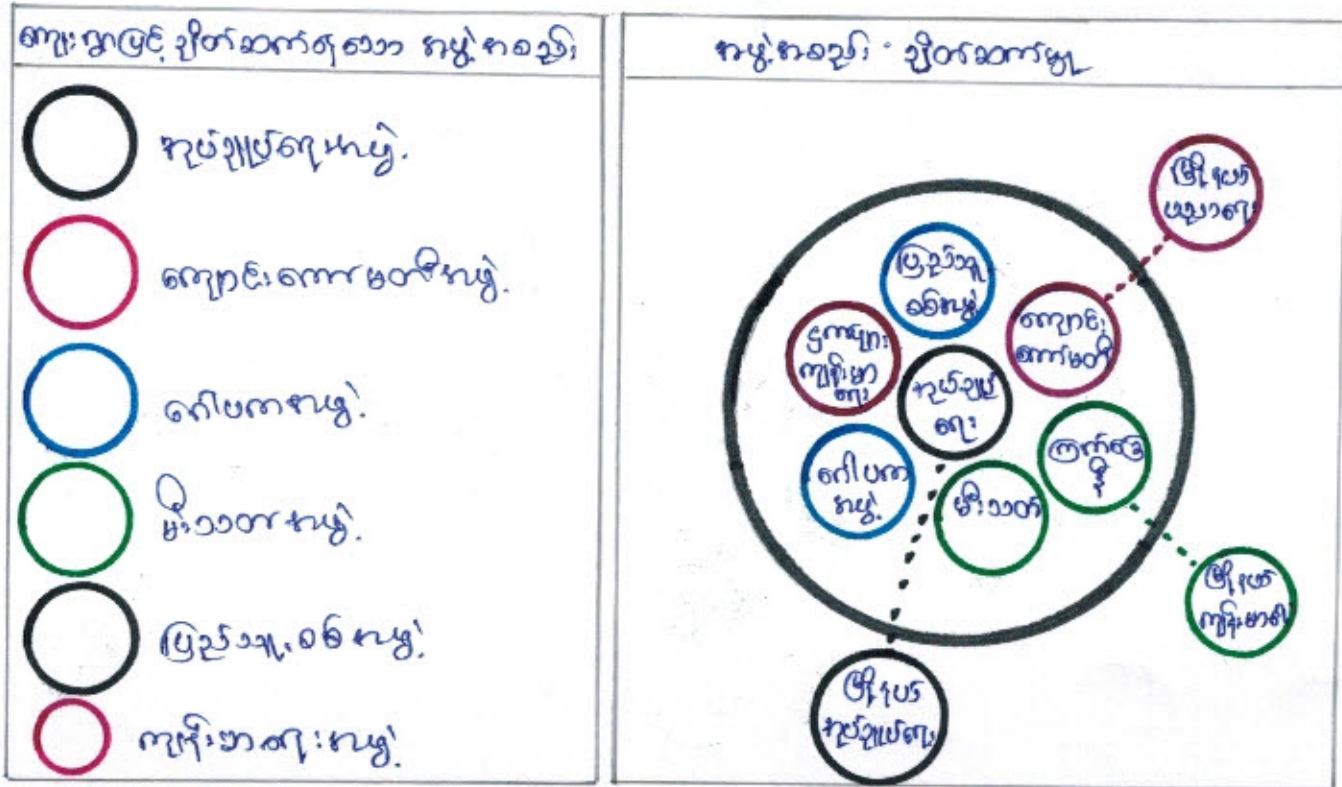 ကျေးရွာဖြင့် ချိတ်ဆက်ရသော အဖွဲ့အစည်း
အုပ်ချုပ်ရေးအဖွဲ့
ကျောင်းကော်မတီအဖွဲ့
ဂေါပကအဖွဲ့
မီးသတ်အဖွဲ့
ပြည်သူ့စစ်အဖွဲ့
ကျန်းမာရေးအဖွဲ့
အဖွဲ့အစည်း ချိတ်ဆက်မှု
မြို့နယ်
ပညာရေး
ပြည်သူ့
စစ်အဖွဲ့
ကျောင်း
ကော်မတီ
ငှက်ဖျား
ကျန်းမာ
ရေး
အုပ်ချုပ်
ရေး
ကြက်ခြေ
နီ
ဂေါပက
အဖွဲ့
မီးသတ်
မြို့နယ်
ကျန်းမာရေး
မြို့နယ်
အုပ်ချုပ်ရေး